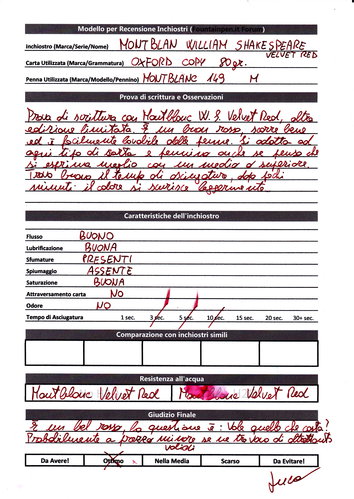 Modello per Recensione Inchiostri (fountainpen.it Forum)
Inchiostro (Marca/Serie/Nome) MONTBLAN WILLIAM SHAKESPEARE
VELVET RED
Carta Utilizzata (Marca/Grammatura) OXFORD COPY 80gr.
Penna Utilizzata (Marca/Modello/Pennino) MONTBLANC 149 M
Prova di scrittura e Osservazioni
Prova di scrittura con Montblanc W.S. Velvet Red, altra
edizione limitata. È un buon rosso, scorre bene
ed è facilmente lavabile dalla penna. Si adatta ad
ogni tipo di carta e pennino anche se penso che
si esprima meglio con un medio o superiore.
Trovo buono il tempo di asciugatura, dopo pochi
minuti il colore si scurisce leggermente.
Caratteristiche dell'inchiostro
Flusso BUONO
Lubrificazione BUONA
Sfumature PRESENTI
Spiumaggio ASSENTE
Saturazione BUONA
Attraversamento carta NO
Odore NO
Tempo di Asciugatura 1sec. 3sec. 5sec. 10sec. 15sec. 20 sec. 30+ sec.
Comparazione con inchiostri simili
Resistenza all'acqua
Montblanc Velvet Red Montblanc Velvet Red
Giudizio Finale
È un bel rosso, la questione è: Vale quello che costa?
Probabilmente a prezzo minore se ne trovano di altrettanto
validi
Da Avere! Ottimo Nella Media Scarso Da Evitare!
Luca